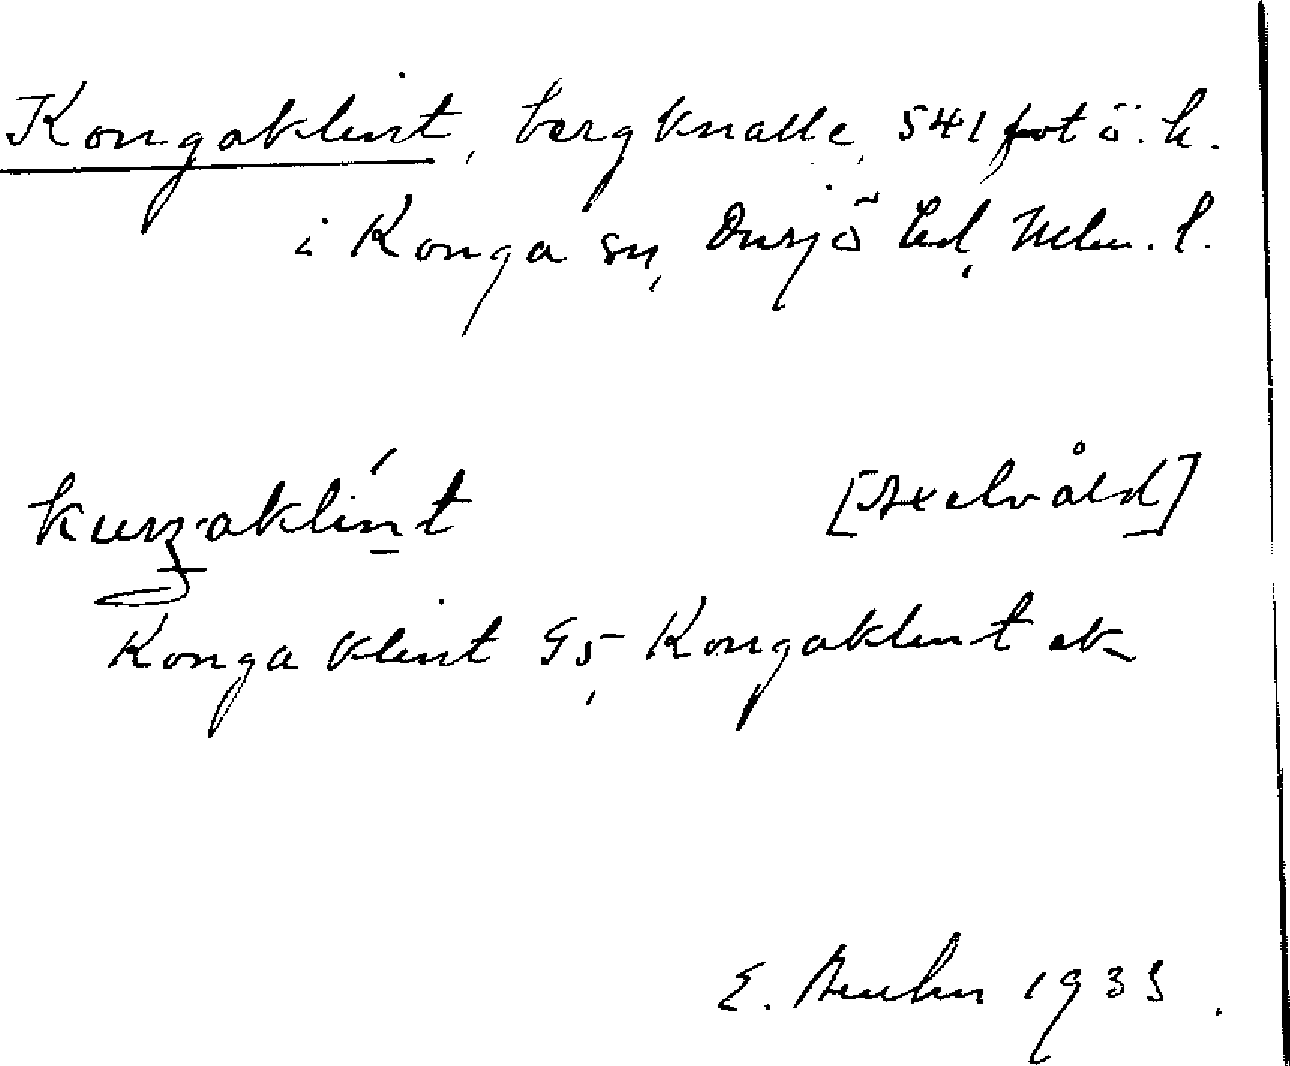 Kongaklint, bergknalle, 541 fot ö. h.
i Konga sn, Onsjö hd, Mlm. l.
kuŋaklint [Axelvåld]
Konga klint G5, Kongaklint ek
E. Bruhn 1933.